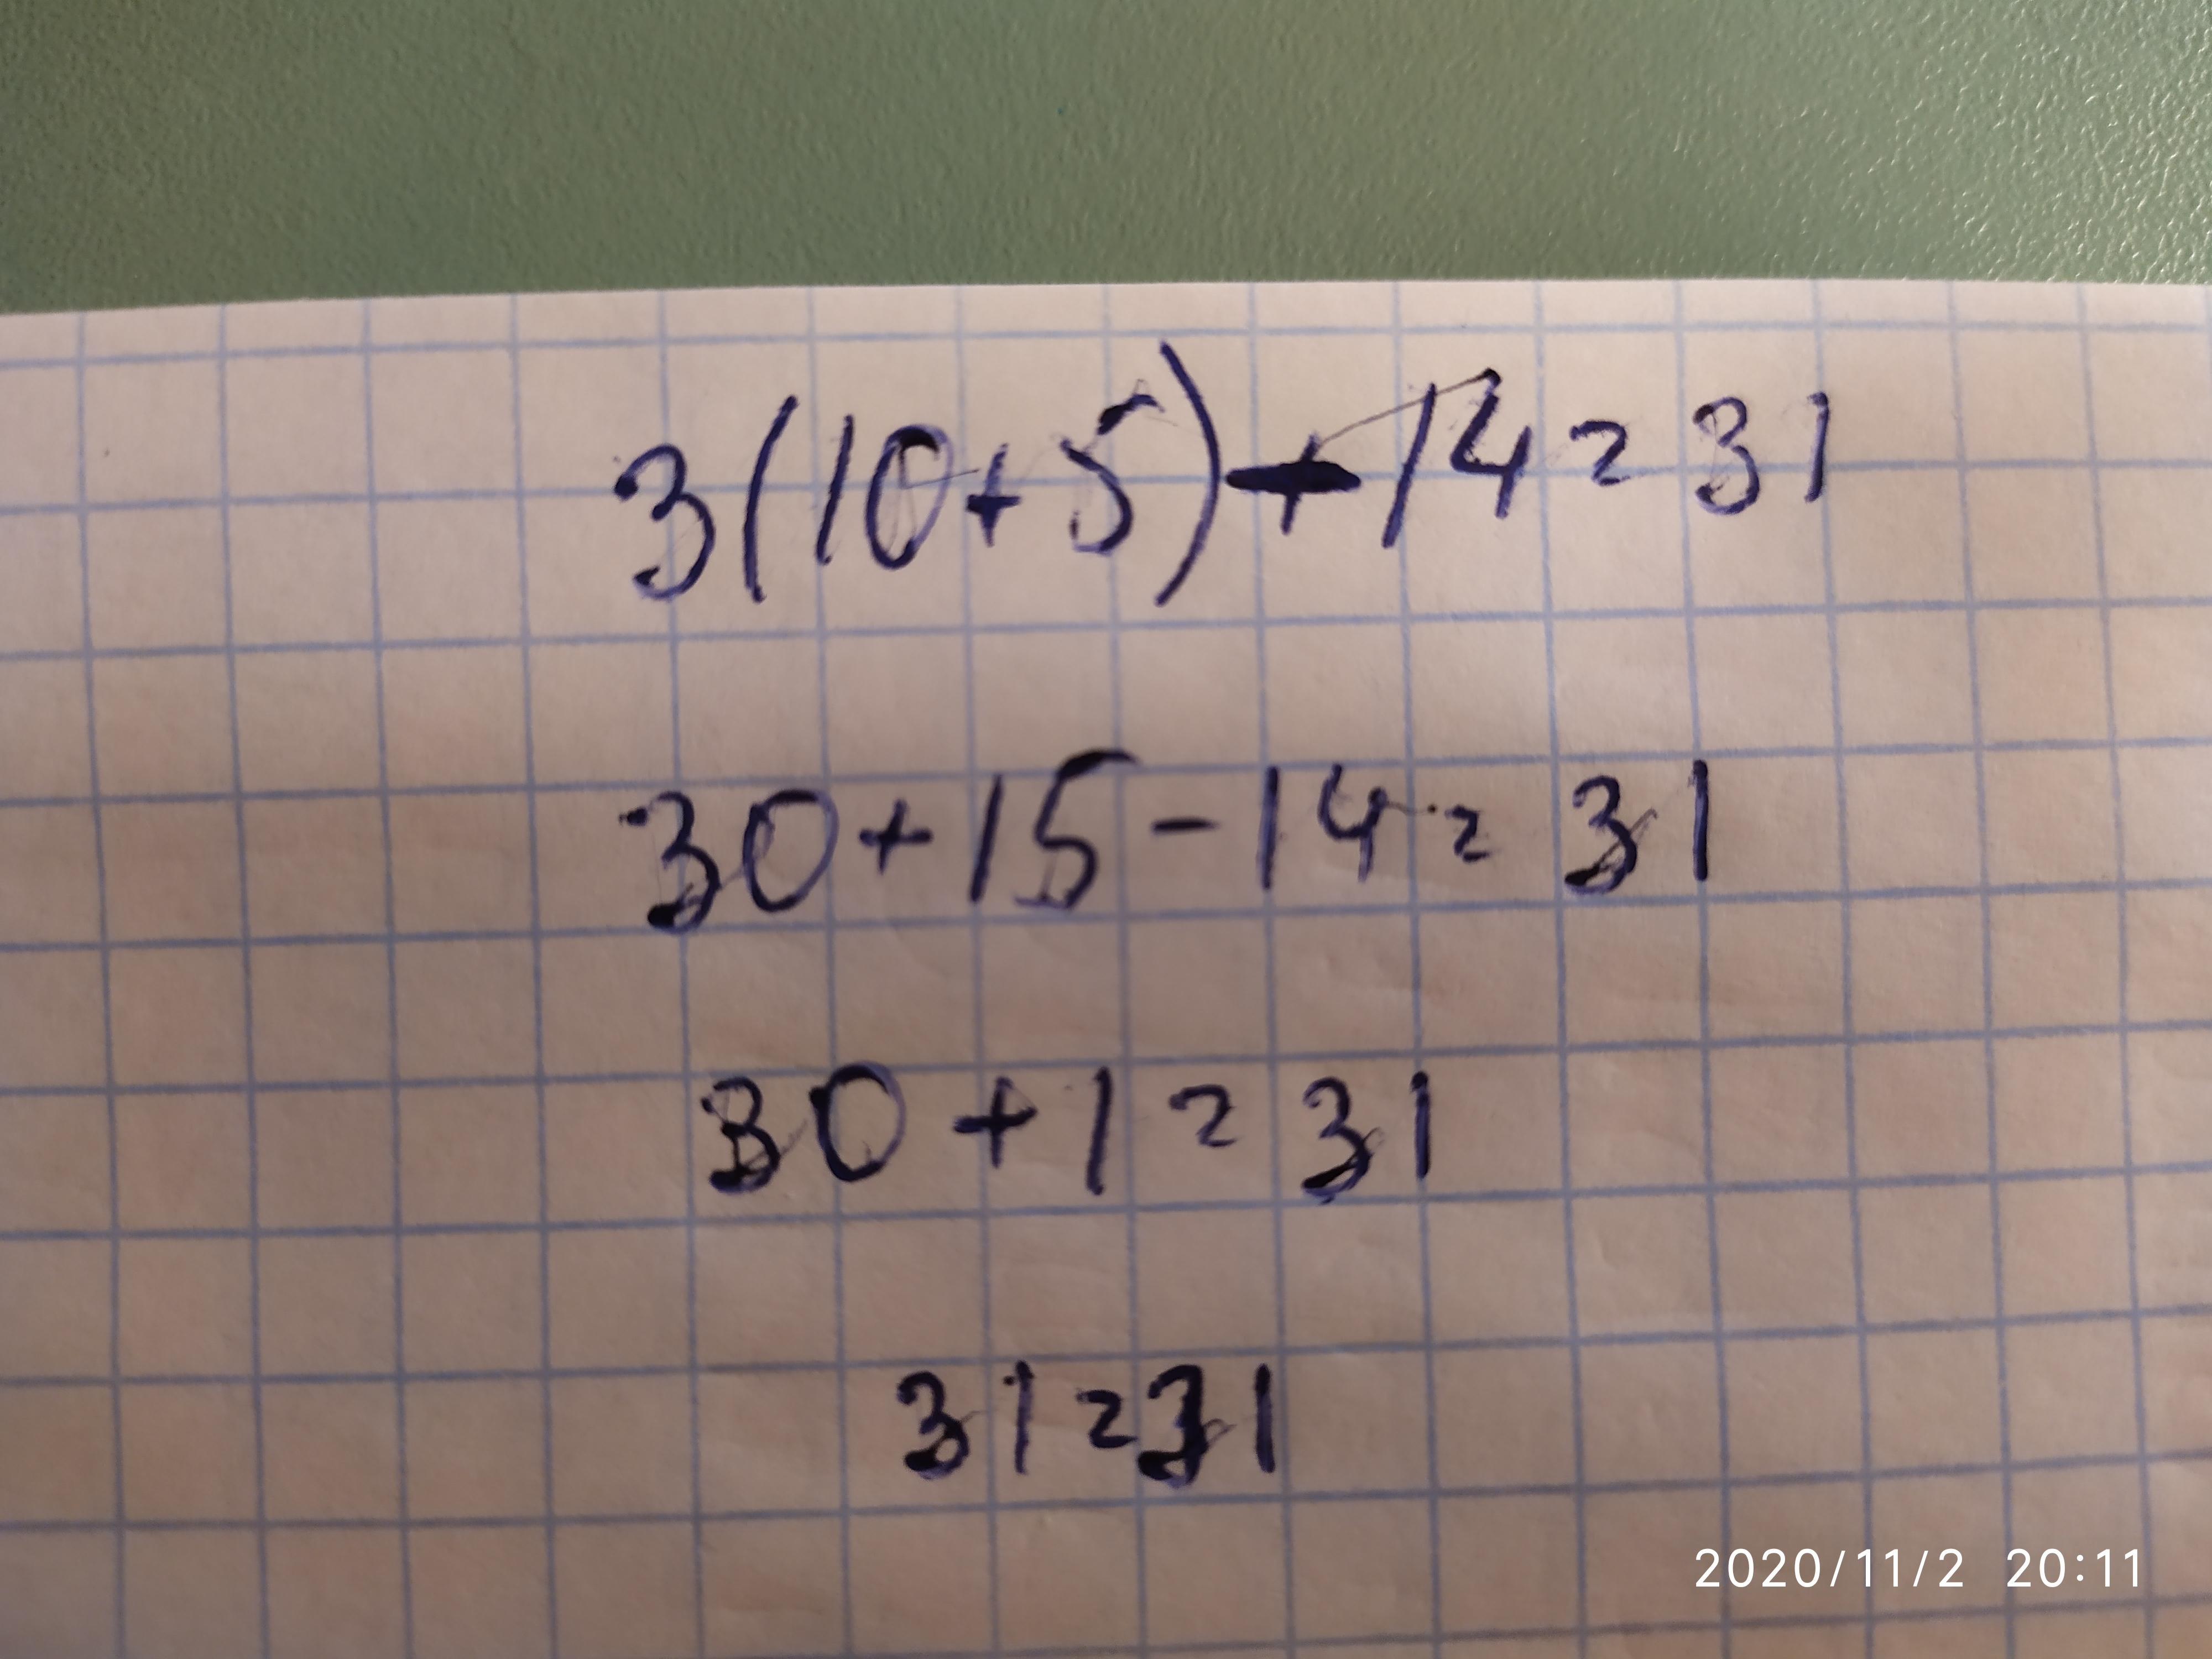 3(10+5)-14=31
30+15-14=31
30+1=31
31=31
2020/11/2 20:11